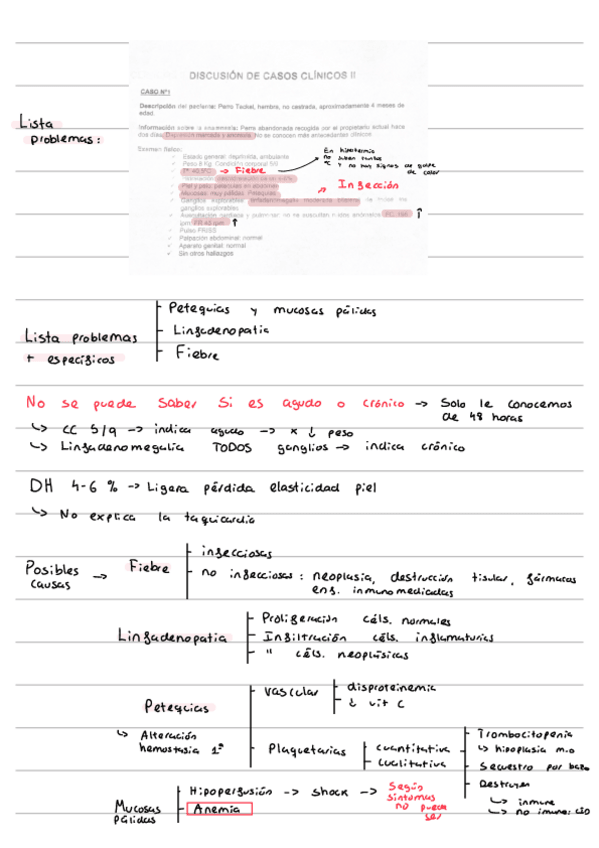 DISCUSIÓN DE CASOS CLÍNICOS II
CASO Nº1
Descripción del paciente: Perro Teckel, hembra, no castrada, aproximadamente 4 meses de
edad.
Información sobre la anamnesis: Perra abandonada recogida por el propietario actual hace
dos días. Depresión marcada y anorexia. No se conocen más antecedentes clínicos.
Examen físico:
Estado general: deprimida, ambulante
Peso 8 Kg. Condición corporal 5/9
Piel y pelo: petequias en abdomen
Mucosas: muy pálidas. Petequias
Pulso FRISS
Palpación abdominal: normal
Aparato genital: normal
Sin otros hallazgos
Lista
problemas:
→ Fiebre
En hipotermia
no suben tantos
ºC y no hay signos de golpe
de calor
→ Infección
Lista problemas
+ específicos
Petequias y mucosas pálidas
Linfadenopatia
Fiebre
No se puede saber si es agudo o crónico → Solo le conocemos
de 48 horas
↳ CC 5/9 → indica agudo → x ↓ peso
↳ Linfadenomegalia TODOS ganglios → indica crónico
DH 4-6 % → Ligera pérdida elasticidad piel
↳ No explica la taquicardia
Posibles
causas
→ Fiebre
infecciosas
no infecciosas: neoplasia, destrucción tisular, fármacos
enf. inmunomediadas
Linfadenopatia
Proliferación céls. normales
Infiltración céls. inflamatorias
" céls. neoplásicas
Petequias
↳ Alteración
hemostasia 1ª
vascular
disproteinemia
↓ vit C
Plaquetarias
cuantitativa
cualitativa
Trombocitopenia
↳ hipoplasia m.o
Secuestro por bazo
Destrucn
↳ inmune
↳ no inmune: CID
Mucosas
pálidas
Hipoperfusión → shock → Según
síntomas
no puede
ser
Anemia